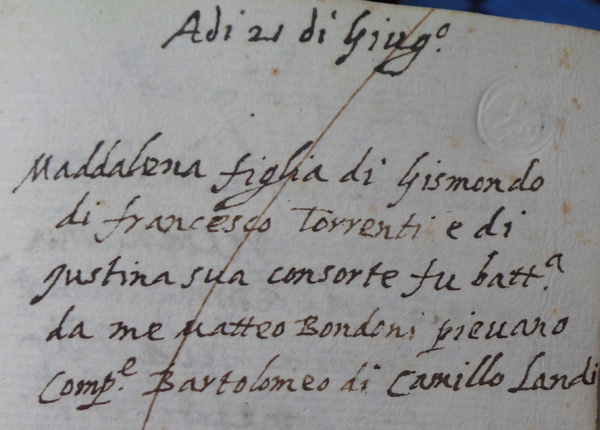 Adi 21 di Giug.º
Maddalena figlia di Gismondo
di francesco Torrenti e di
Justina sua consorte fu batt.ª
da me Matteo Bondoni pievano
Comp.e Bartolomeo di Camillo Landi